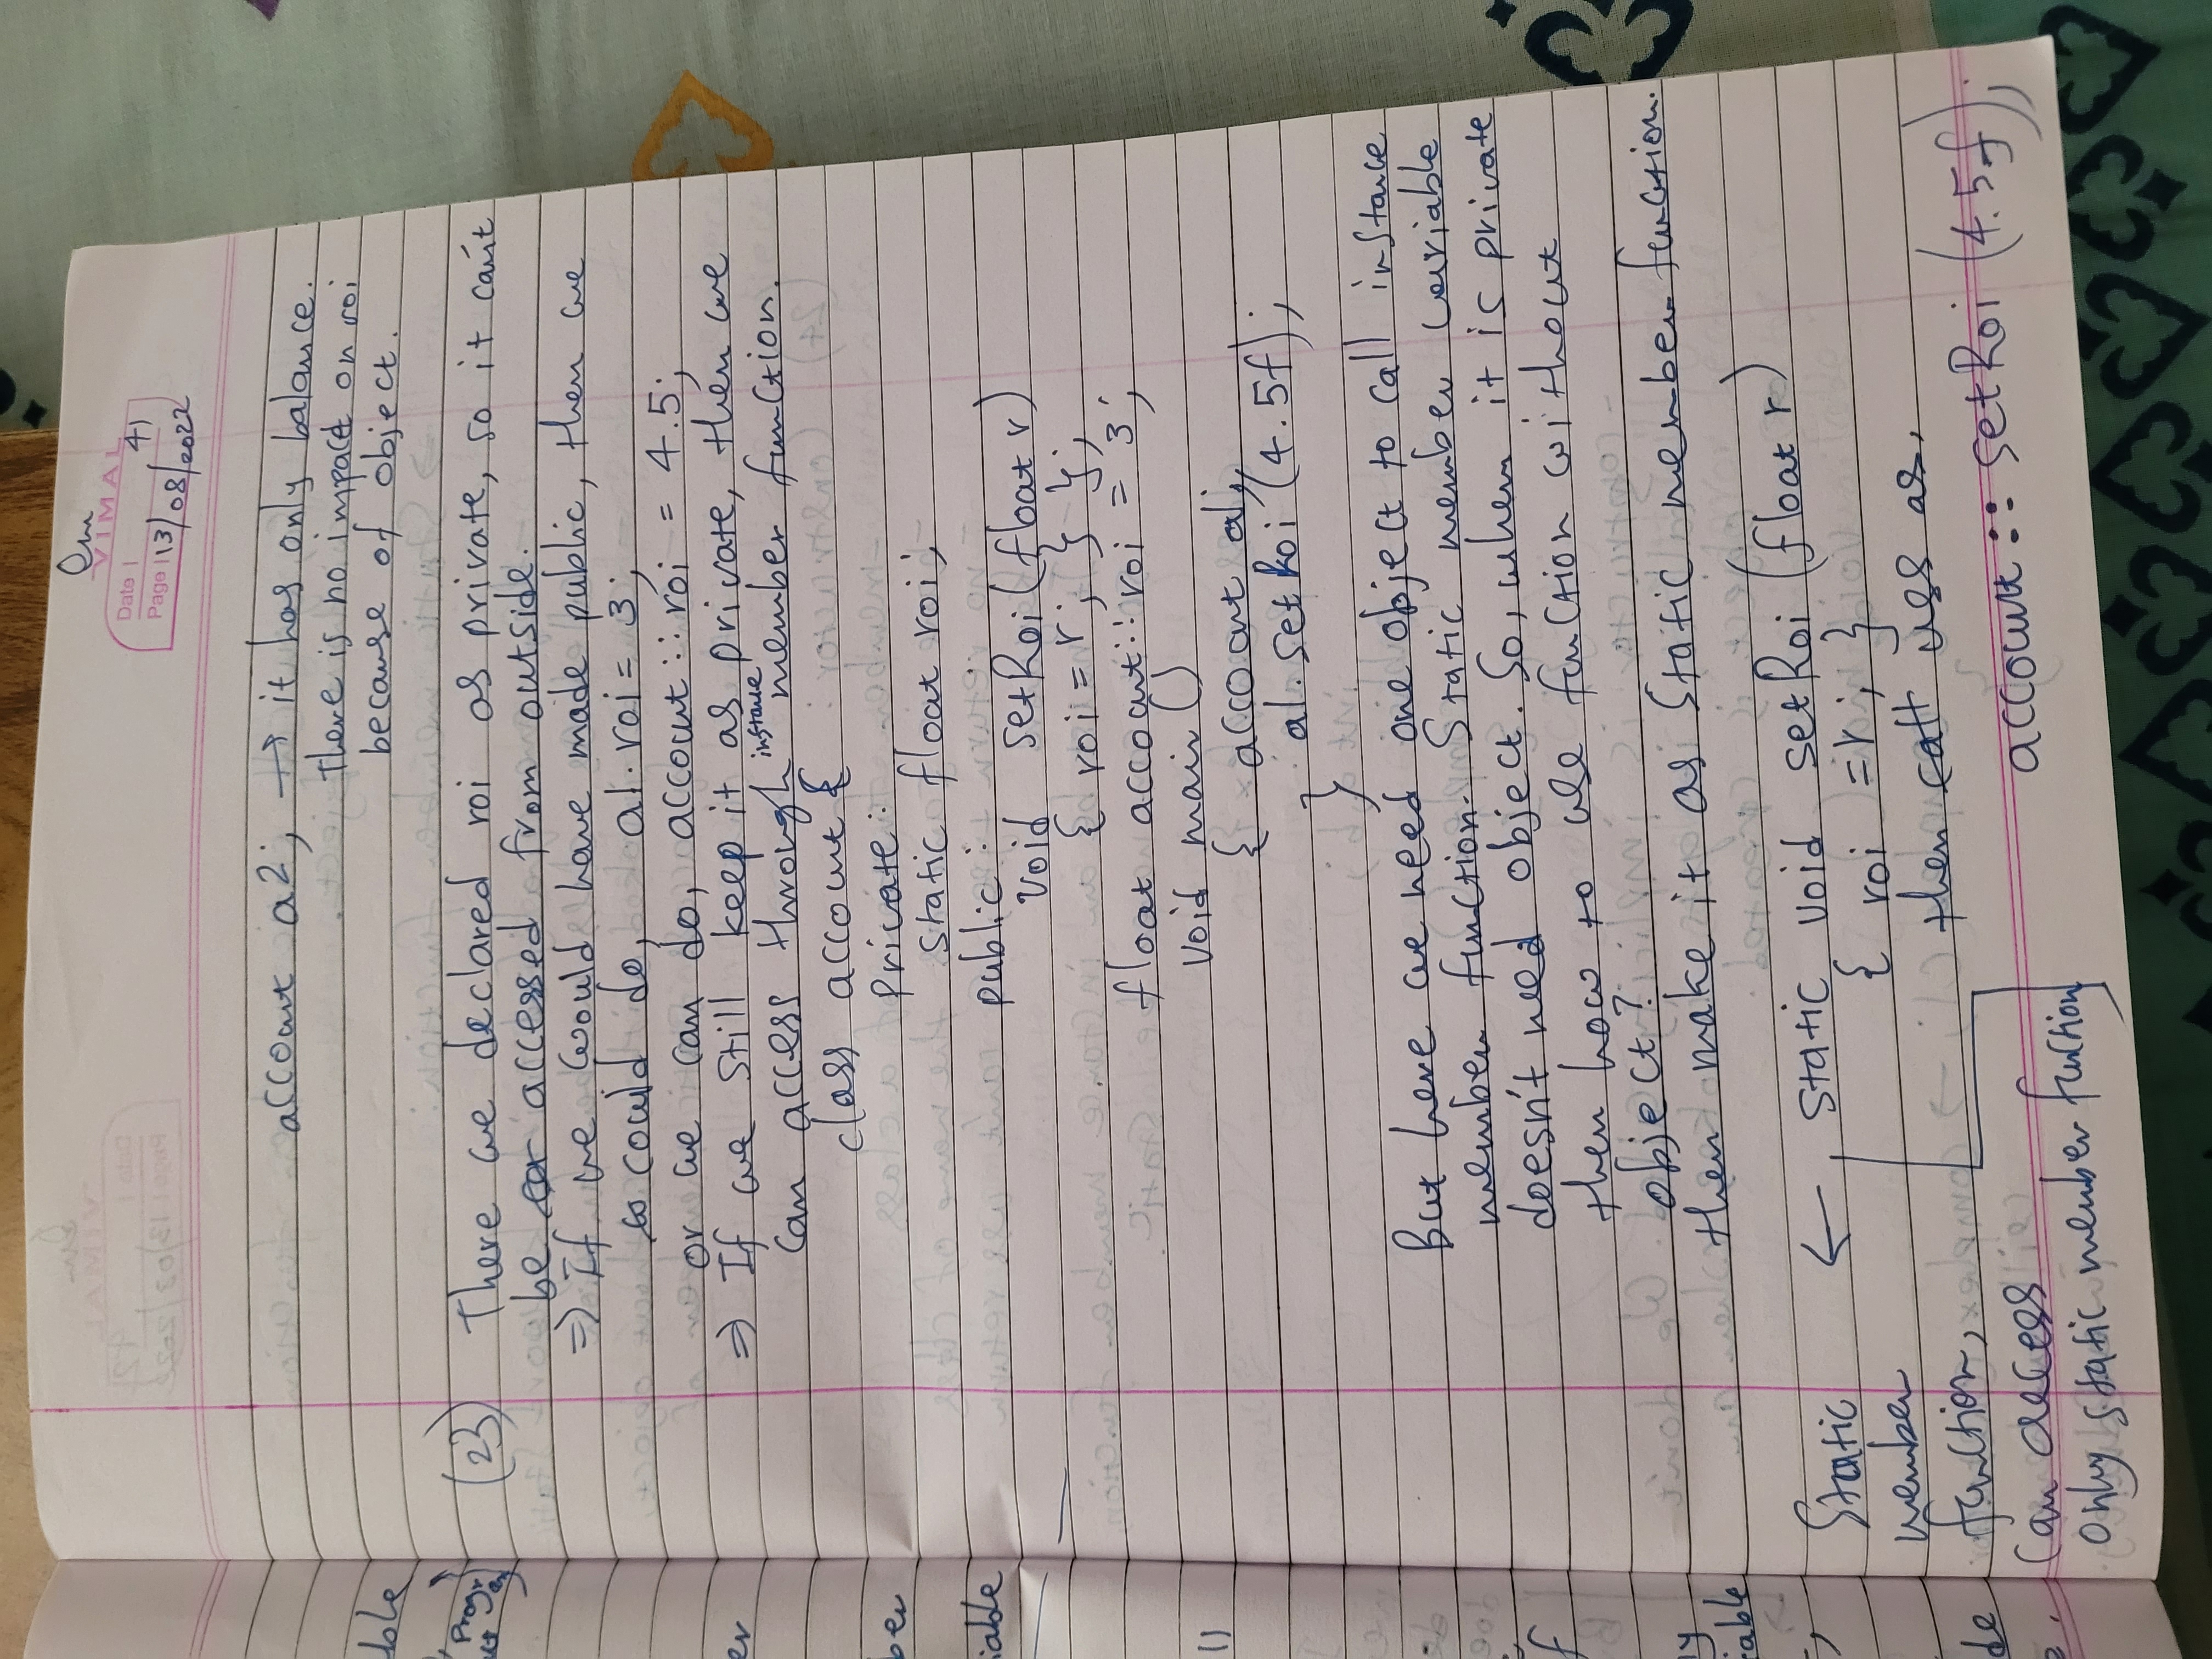 Om
VIMAL
Date | 41
Page | 13/08/2022
account a2; → it has only balance.
There is no impact on roi
because of object.
(23) There we declared roi as private, so it can't
be accessed from outside.
⇒ If we would have made public, then we
could do, a1.roi = 3;
or we can do, account::roi = 4.5;
⇒ If we still keep it as private, then we
can access through instance member function.
class account {
private:
static float roi;
public:
void setRoi(float r)
{ roi = r; } };
float account::roi = 3;
void main()
{ account a1;
a1.setRoi(4.5f);
}
But here we need one object to call instance
member function. Static member variable
doesn't need object. So, when it is private
then how to use function without
object?
then make it as static member function.
static void setRoi(float r)
{ roi = r; }
then call uss as,
account::setRoi(4.5f);
← Static
member
function,
can access
only static member function
ble
Progr
er
ber
iable
11
f
ly
iable
de